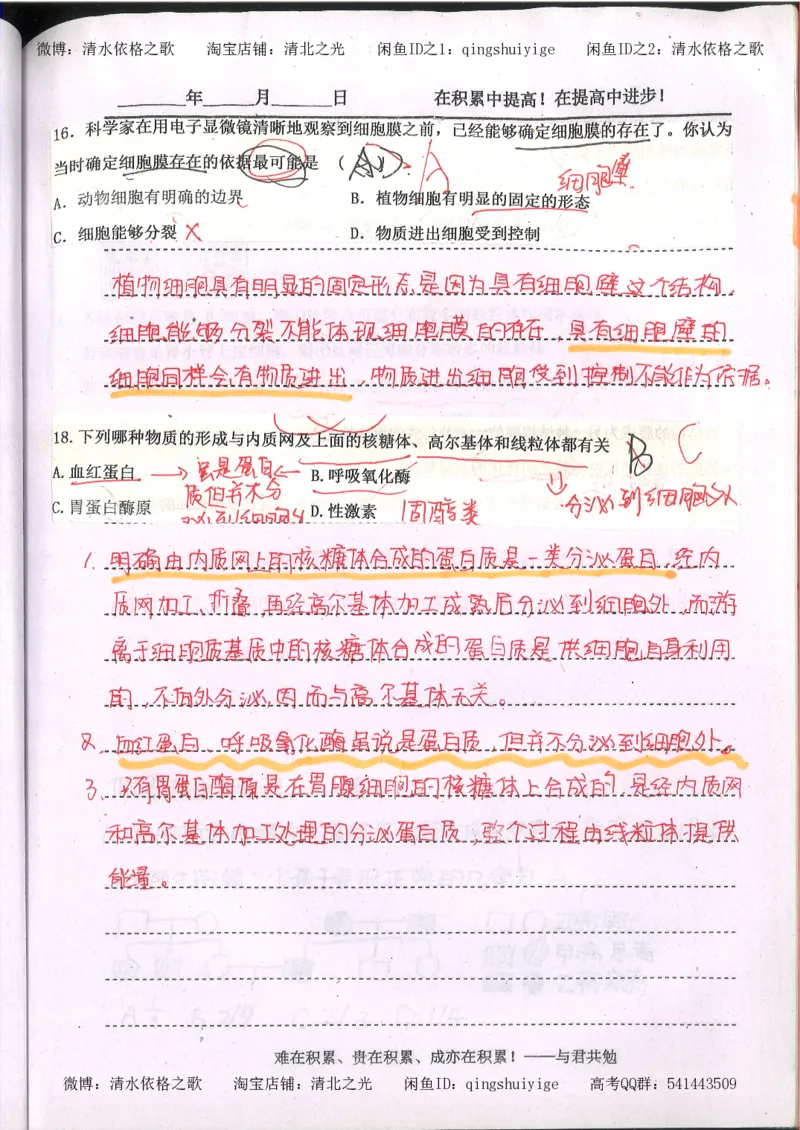 微博：清水依格之歌 淘宝店铺：清北之光 闲鱼ID之1：qingshuiyige 闲鱼ID之2：清水依格之歌
年 月 日 在积累中提高！在提高中进步！
16．科学家在用电子显微镜清晰地观察到细胞膜之前，已经能够确定细胞膜的存在了。你认为
当时确定细胞膜存在的依据最可能是（ ） A
细胞壁
A．动物细胞有明确的边界 B．植物细胞有明显的固定的形态
C．细胞能够分裂 × D．物质进出细胞受到控制
植物细胞具有明显的固定形态是因为具有细胞壁这个结构，
细胞能够分裂不能体现细胞膜的存在，具有细胞壁的
细胞同样会有物质进出，物质进出细胞受到控制不能作为依据。
18.下列哪种物质的形成与内质网及上面的核糖体、高尔基体和线粒体都有关 B C
A.血红蛋白 → 虽是蛋白 ← B.呼吸氧化酶
质但并不分
分泌到细胞外
C.胃蛋白酶原 D.性激素 固醇类
1. 明确由内质网上的核糖体合成的蛋白质是一类分泌蛋白，经内
质网加工、折叠，再经高尔基体加工成熟后分泌到细胞外，而游
离于细胞质基质中的核糖体合成的蛋白质是供细胞自身利用
的，不向外分泌，因而与高尔基体无关。
2. 血红蛋白、呼吸氧化酶虽说是蛋白质，但并不分泌到细胞外。
3. 只有胃蛋白酶原是在胃腺细胞的核糖体上合成的，是经内质网
和高尔基体加工处理的分泌蛋白质，整个过程由线粒体提供
能量。
难在积累、贵在积累、成亦在积累！——与君共勉
微博：清水依格之歌 淘宝店铺：清北之光 闲鱼ID：qingshuiyige 高考QQ群：541443509